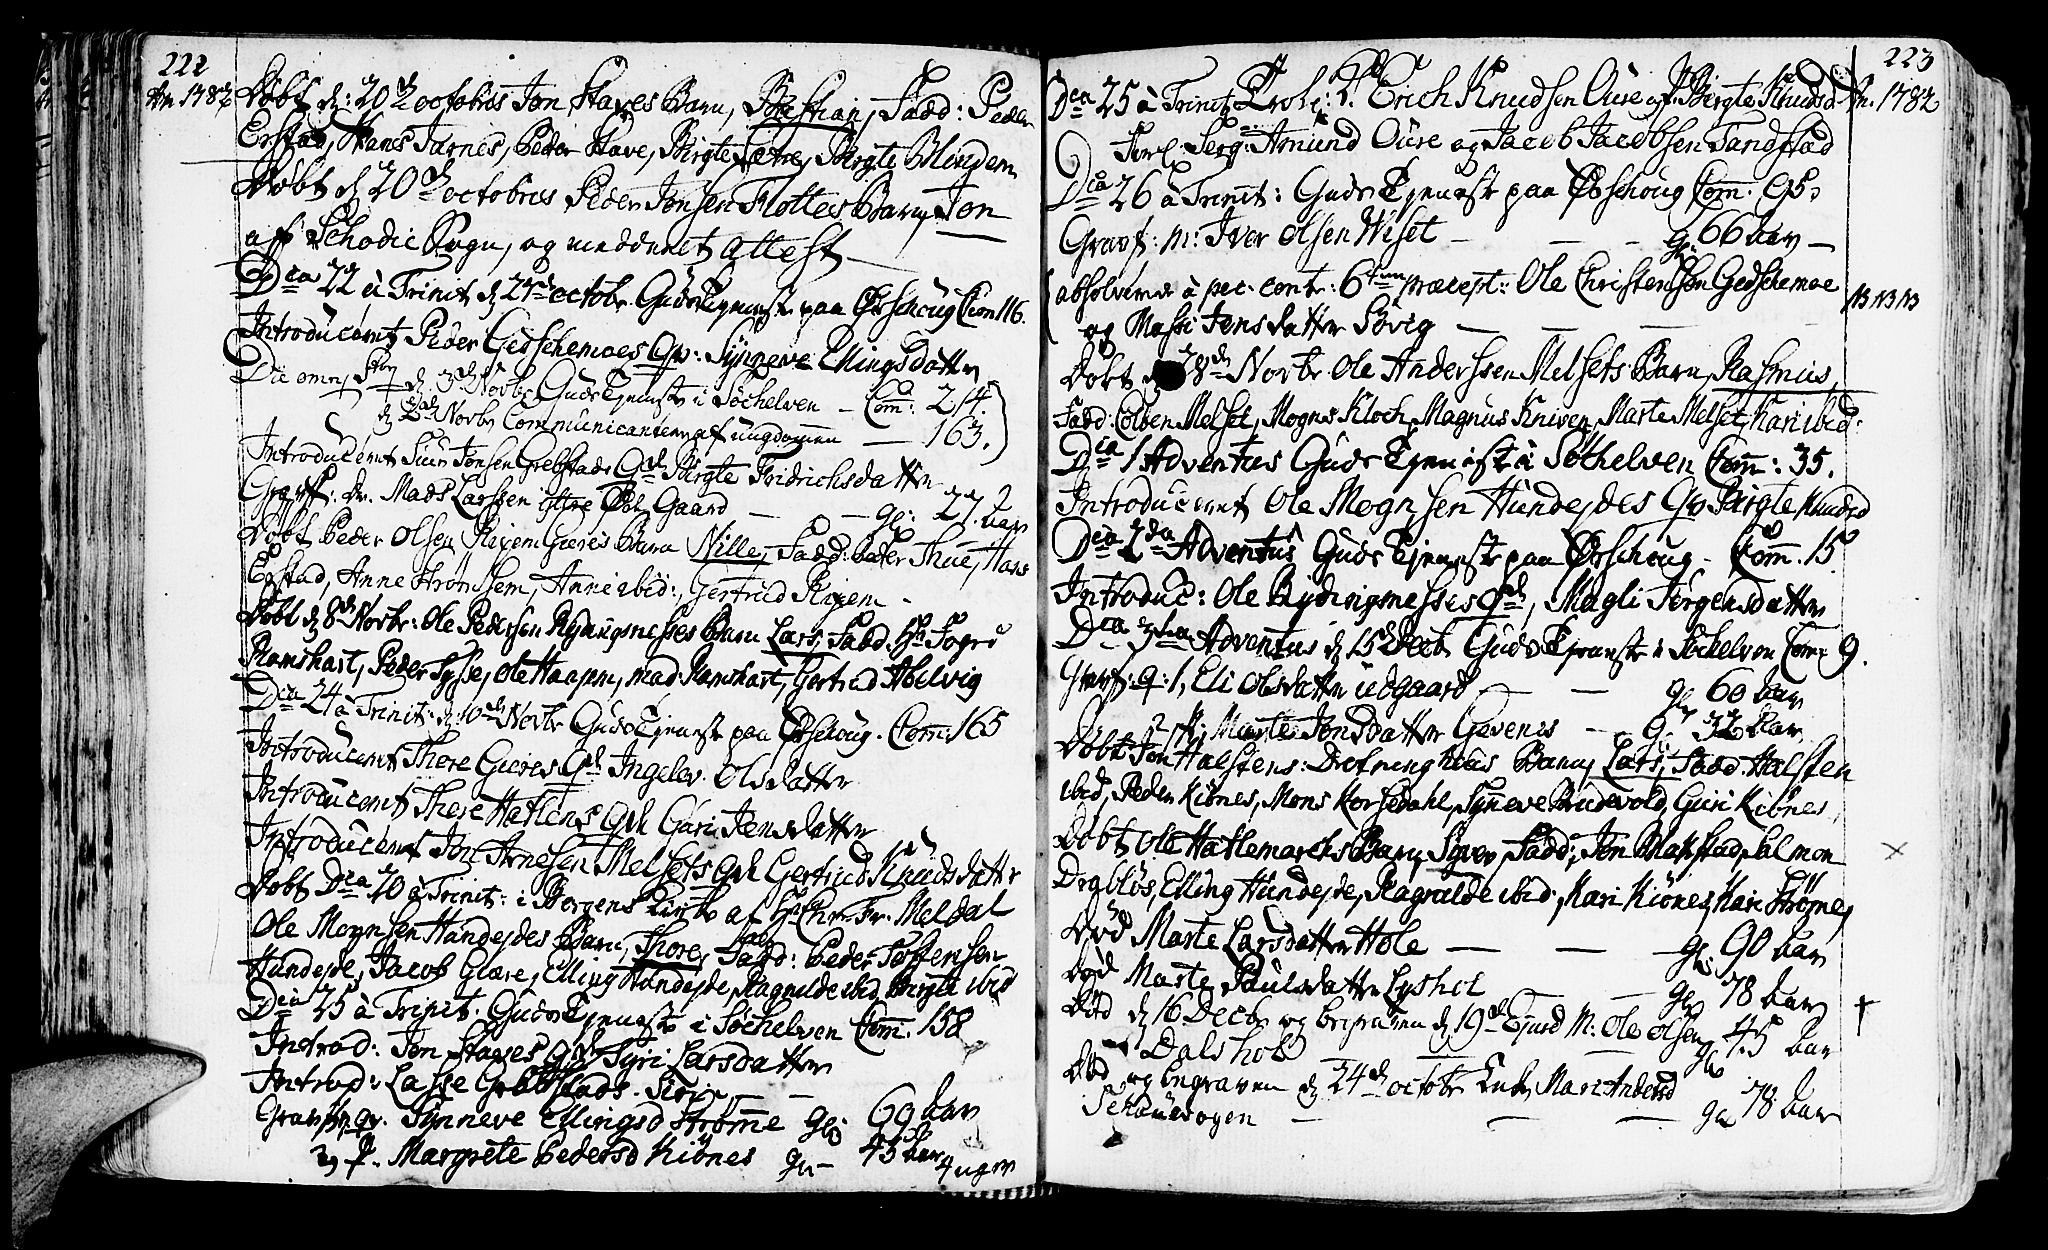 222
An 1782
Døbt d: 20de octobris Jon Staves Barn, Bastian, Fadd: Peder
Erstad, Hans Tarnes, Peder Stave, Birgte Sætre, Birgte Mindem
Døbt d 20de octobris Peder Jonsen Flottes Barn, Jon
aff Schodie Sogn, og meddeelt attest
Dca 22 à Trinit d 27de octobr. Gudstjeneste paa Ørschoug Com 116.
Introduceret Peder Gedschemoes Qv: Synneve Ellingsdatter
Die omn, Sty d. 3de Novbr Guds Tjeneste i Søchelven - Com: 214.
d 2de Novbr Communicanter af ungdommen - 163.
Introduceret Siur Jonsen Grebstads Qde Birgte Fridrichsdatter
Graff: Dr. Mads Larssen ittre Gaard - - gl: 27. Aar
Døbt Peder Olsen Rigem Gieres Barn Nille, Fadd: Peder Thue, Hans
Egstad, Anne Stromhem, Anne ibid:, Gertrud Rigem -
Døbt d 8de Novbr: Ole Pedersen Rydingsnesses Barn Lars, Fadd: Hr Fogd
Ramshart, Peder Sysse, Ole Haagen, Mad: Ramshart, Gertrud Helvig
Dca 24 à Trinit: d: 10de Novbr Guds Tjeneste paa Ørschoug. Com: 165
Introduceret Thore Gieres Qde Ingelev Olsdatter
Introduceret Thore Hatlens Qde Guri Jensdatter
Introduceret Jon Arnesen Melsets Qde Gertrud Knudsdatter
Døbt Dca 20 à Trinit: i Borgens Kirke af Hr Chr. Fr. Meldal
Ole Mognsen Hundejdes Barn, Thore, Fadd: Peder Toftensen
Hundejde, Jacob Giære, Elling Hundejde, Ragnilde ibid, Birgte ibid
Dca 25 à Trinit. Guds Tjeneste i Søchelven Com: 158
Introd: Jon Staves Qde Syri Larsdatter
Introd: Lasse Grebstads.
Graff: qv. Synneve Ellingsd Strømme gl: 69 Aar
2, p. Margrete Pedersd Kiönes gl- 45 Aar 4 uger
223
An. 1782
Dca 25 à Trinit Trolf: S. Erich Knudsen Oure og P. Birgte Knudsd
Forl: Serg: Amund Oure og Jacob Jacobsen Tandstad
Dca 26 à Trinit: Guds Tjeneste paa Ørschoug Com. 95.
Graff: m: Iver Olsen Wiset - - - gl 66 aar -
absolverede à pec: contr: 6tum præcept: Ole Christensen Gedschemoe
og Massi Jensdatter Søvig - - -
Døbt d 28de Novbr Ole Anderssen Melsets Barn, Rasmus,
Fadd: Colben Melset, Mogns Kloch, Magnus Kniven, Marte Melset, Kari ibid:
Dca 1 Adventus Guds Tjeneste i Søchelven Com: 35.
Introduceret Ole Mognsen Hundejdes Qv Birgte Knudsd
Dca 2da Adventus Guds Tjeneste paa Ørschoug - Com. 15
Introduc: Ole Rydingsnesses Qde, Magli Jørgensdatter
Dca 3tia Adventus d 15 Decbr Guds Tjeneste i Søchelven Com: 9.
Graff: q: 1, Eli Olsdatter Uedgaard - - gl 60 Aar
2, p: Marte Jonsdatter Gevenes - - gl 32 Aar
Døbt Jon Halstens: Drotninghaus Barn, Lars, Fadd: Halsten
ibid, Peder Kiönes, Mons Korsedahl, Syneve Budevold, Guri Kiönes
Døbt Ole Hatlemarks Barn, Syver, Fadd: Jon Makstad, Salmon
Drabløs, Elling Hundejde, Ragnilde ibid:, Kari Kiönes, Kari Strømes
Død Marte Larsdatter Hole - - gl: 90 Aar
Død Marte Paulsdatter Lyshol - - gl 78 Aar
Død d 16 Decbr og begraven d 19de Ejusd M: Ole Olsen
Dalshol - - gl 45 Aar
Død og begraven d 24de octobr Enke, Mari Andersd
Schaursogen - - - gl 78 Aar